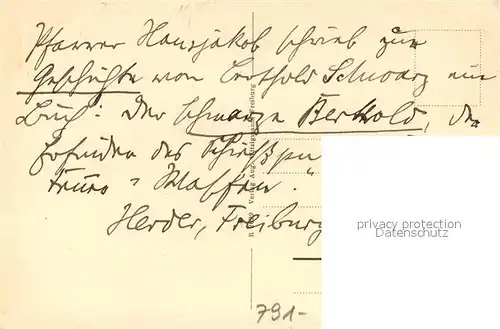 Pfarrer Hansjakob schrieb zur
Geschichte von Berthold Schwarz ein
Buch: Der schwarze Berthold, der
Erfinder des Schießpu
Feuer-Waffen."
Herder, Freiburg
privacy protection
Datenschutz
791-